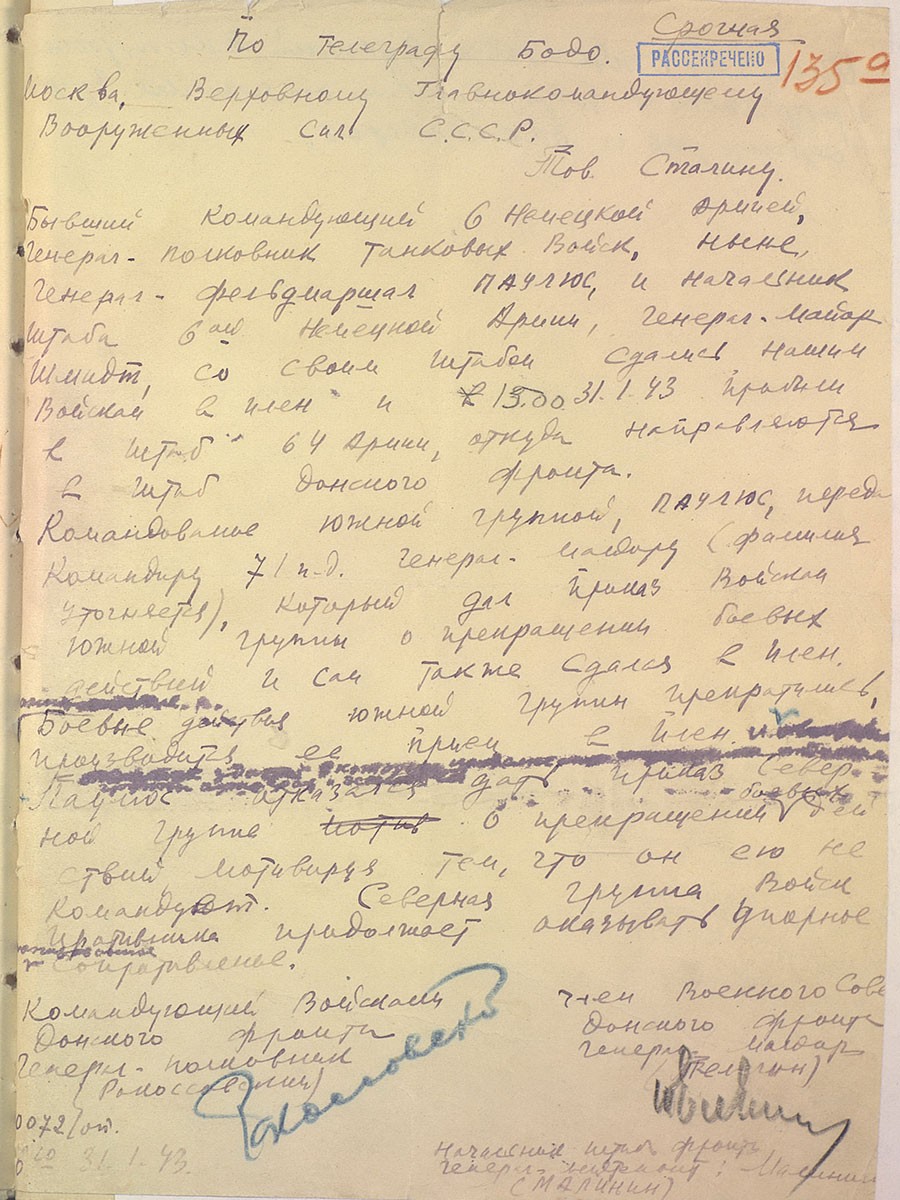 Срочная
По телеграфу Бодо.
РАССЕКРЕЧЕНО
135а
Москва, Верховному Главнокомандующему
Вооруженных Сил С.С.С.Р.
Тов. Сталину.
Бывший командующий 6 Немецкой Армией,
Генерал-полковник танковых Войск, ныне,
Генерал-фельдмаршал ПАУЛЮС, и начальник
Штаба 6ой Немецкой Армии, генерал-майор
Шмидт, со своим штабом сдались нашим
Войскам в плен и в 13.00 31.1.43 прибыли
в штаб 64 Армии, откуда направляются
в штаб Донского фронта.
Командование южной группой, ПАУЛЮС, переда
Командиру 71 п.д. Генерал-майору (фамилия
уточняется), который дал приказ Войскам
южной группы о прекращении боевых
действий и сам также сдался в плен.
Боевые действия южной группы прекратились,
производится ее прием в плен.
Паулюс отказался дать приказ Север-
ной группе о прекращении боевых дей
ствий мотивируя тем, что он ею не
командует. Северная группа Войск
противника продолжает оказывать упорное
сопротивление.
Командующий Войсками
Донского фронта
Генерал-полковник
(Рокоссовский)
Рокоссовский
Член Военного Сове
Донского фронта
генерал-майор
(Телегин)
0072/оп.
31.1.43.
Начальник штаба фронта
генерал-лейтенант: Малинин
(МАЛИНИН)